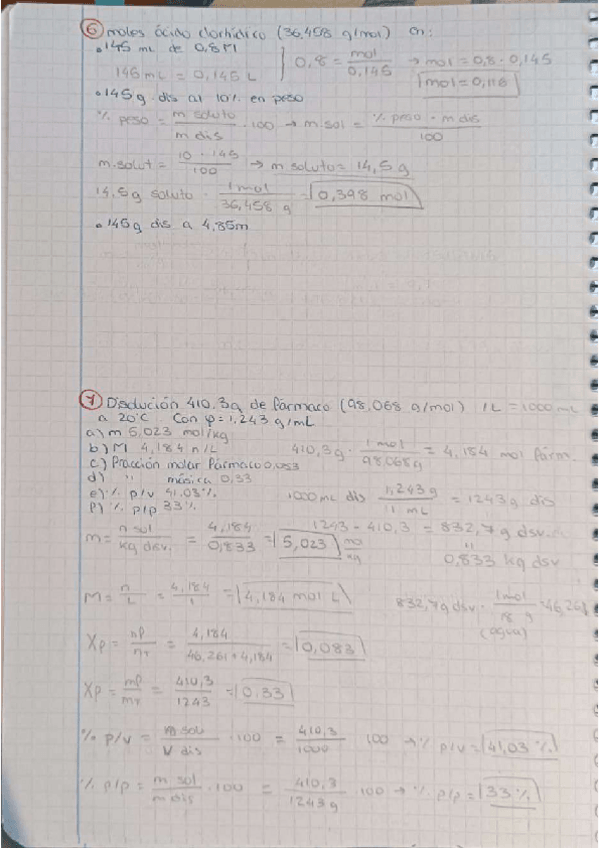 ⑥ moles ácido clorhídrico (36,458 g/mol) en:
• 145 mL de 0,8M
145 mL = 0,145 L
0,8 = mol / 0,145 → mol = 0,8 · 0,145
mol = 0,116
• 145 g dis al 10% en peso
% peso = m soluto / m dis · 100 → m sol = % peso · m dis / 100
m solut = 10 · 145 / 100 → m soluto = 14,5 g
14,5 g soluto · 1 mol / 36,458 g = 0,398 mol
• 145 g dis a 4,85m
⑦ Disolución 410,3g de fármaco (98,068 g/mol) 1L = 1000 mL
a 20°C con φ = 1,243 g/mL
a) m 5,023 mol/kg
b) M 4,184 n/L
410,3g · 1 mol / 98,068g = 4,184 mol fárm.
c) Fracción molar fármaco 0,083
d) " másica 0,33
e) % p/v 41,03%
f) % p/p 33%
1000 mL dis 1,243 g / 1 mL = 1243 g dis
m = n sol / kg dsv. = 4,184 / 0,833 = 5,023 mo/kg
1243 - 410,3 = 832,7 g dsv.
"
0,833 kg dsv
M = n / L = 4,184 / 1 = 4,184 mol L
832,7 g dsv · 1 mol / 18 g = 46,261
(agua)
Xp = np / nT = 4,184 / 46,261 + 4,184 = 0,083
Xp = mp / mT = 410,3 / 1243 = 0,33
% p/v = m sol / V dis · 100 = 410,3 / 1000 100 → % p/v = 41,03 %
% p/p = m sol / m dis · 100 = 410,3 / 1243 g · 100 → % p/p = 33 %